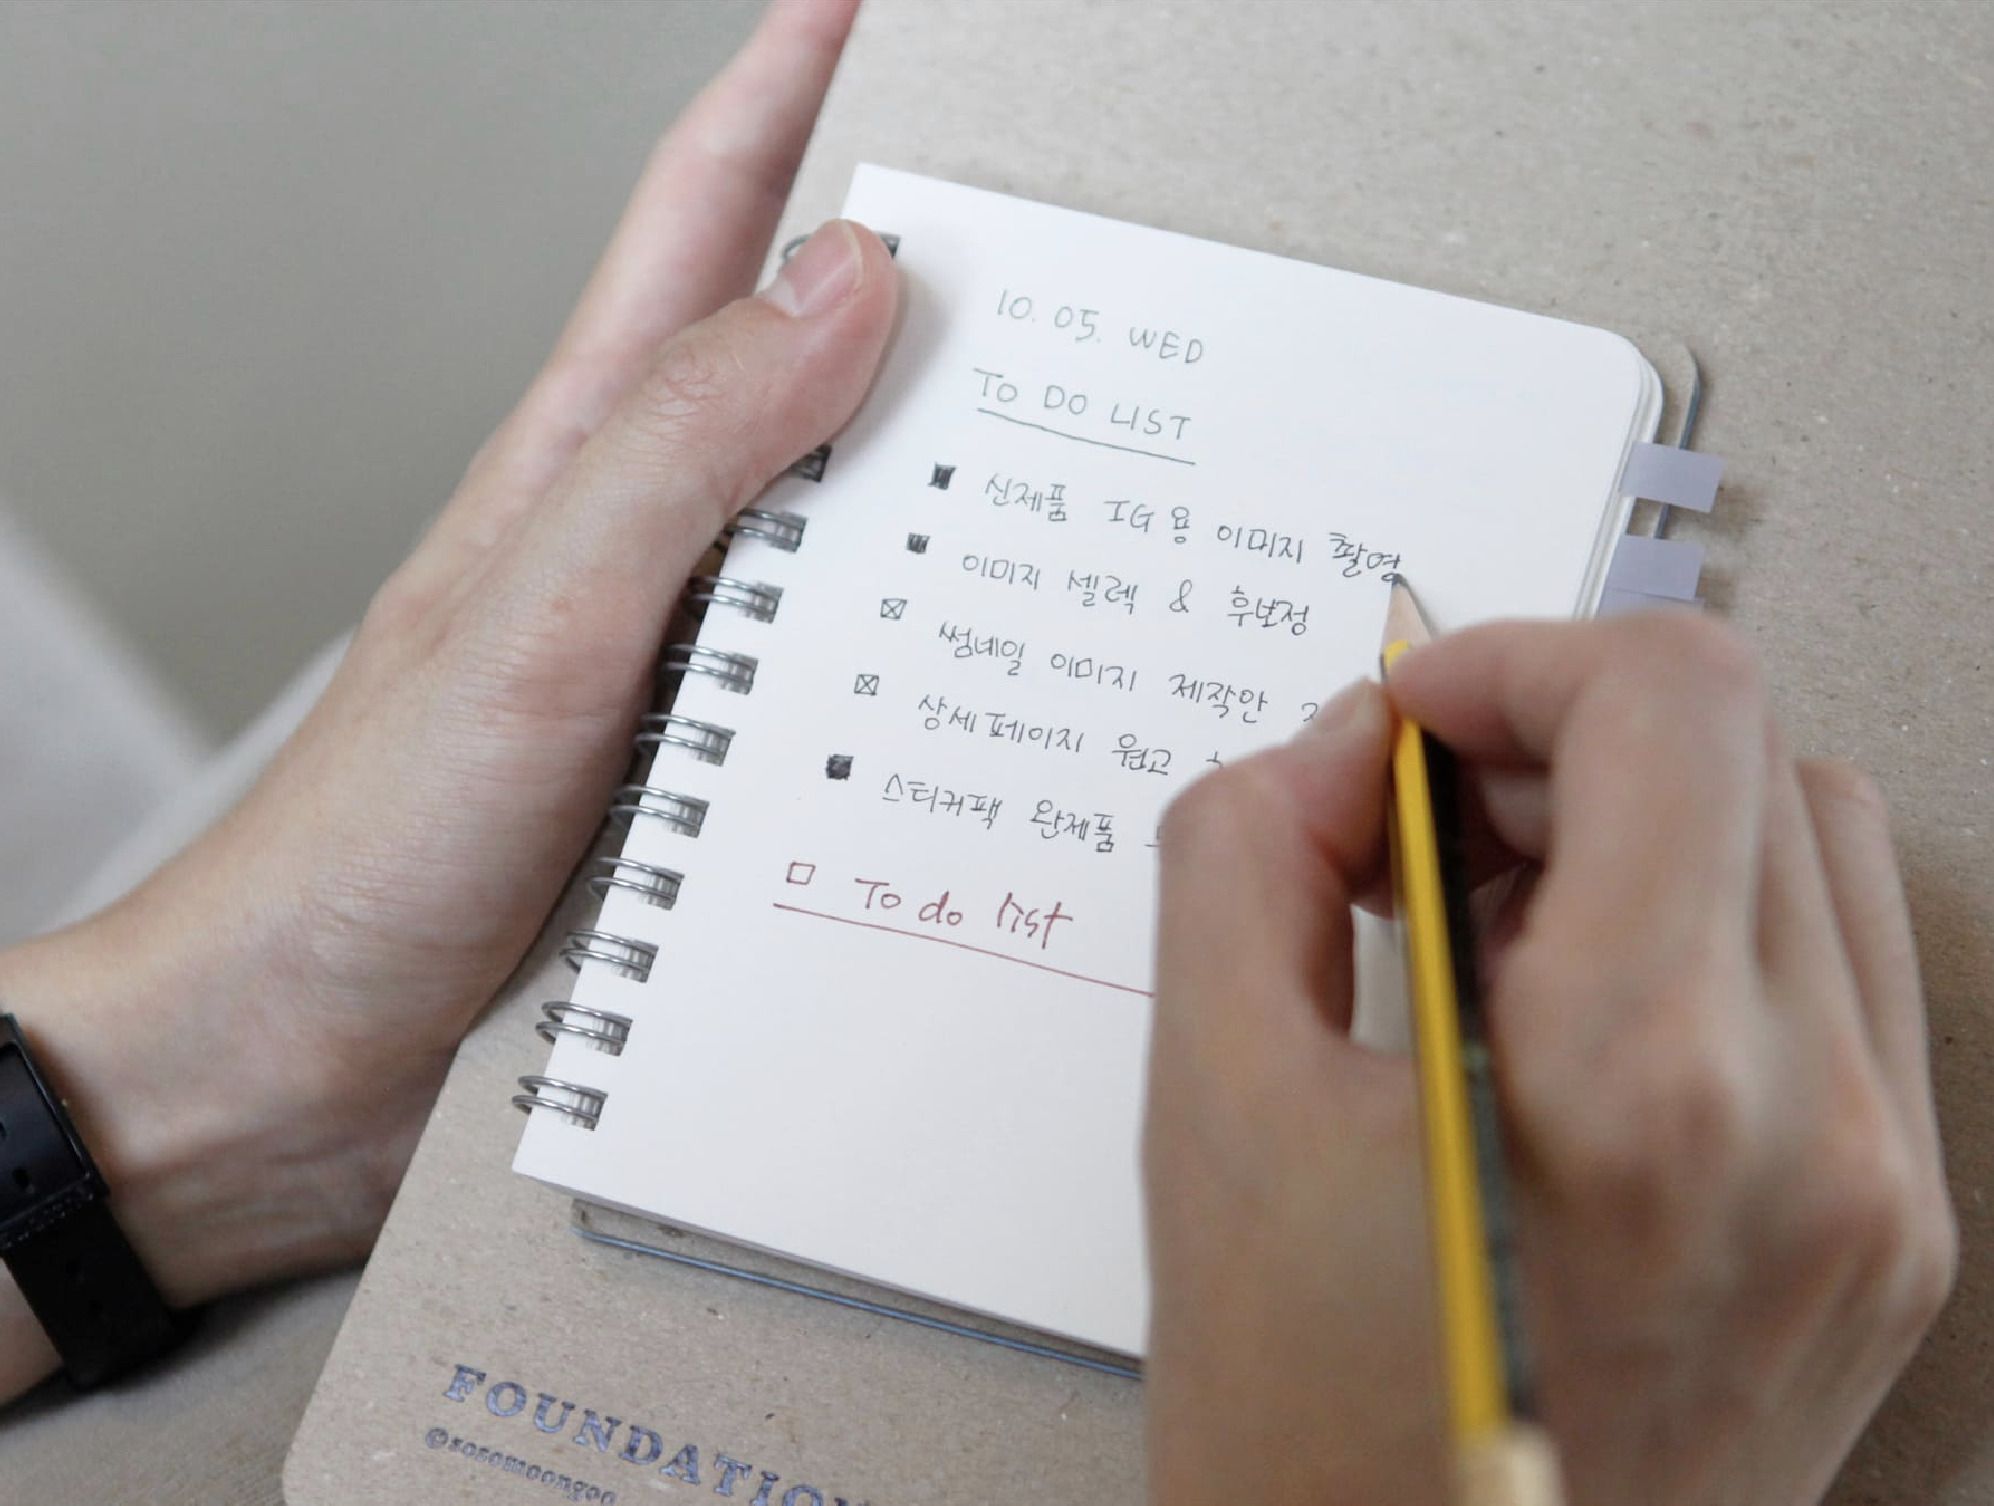 10. 05. WED
TO DO LIST
신제품 IG용 이미지 촬영
이미지 셀렉 & 후보정
썸네일 이미지 제작안
상세페이지 원고
스티커팩 완제품
To do list
FOUNDATION
@sosomoongoo